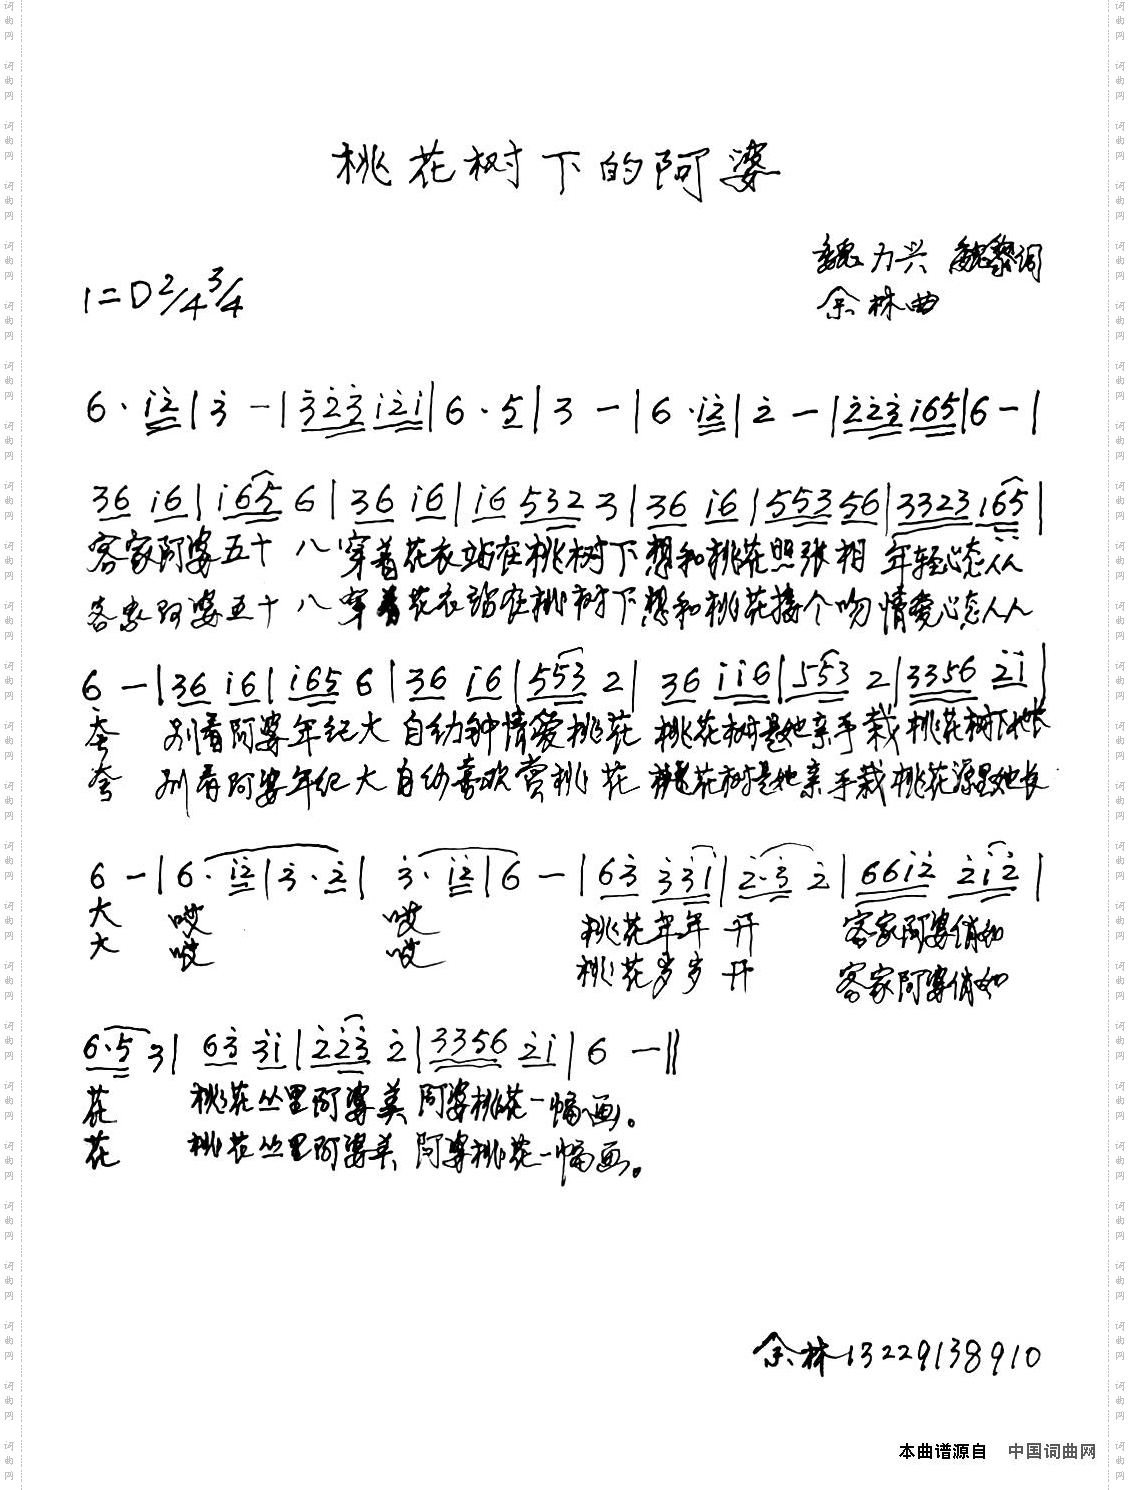 桃花树下的阿婆
魏力兴 魏黎词
1=D 2/4 3/4
余林曲
6· i̇2̇ | 3̇ - | 3̇2̇3̇ i̇2̇i̇ | 6·5 | 3 - | 6· i̇2̇ | 2̇ - | 2̇2̇3̇ i̇65 | 6 - |
36 i̇6 | i̇65 6 | 36 i̇6 | i̇6 532 3 | 36 i̇6 | 553 56 | 3323 165 |
客家阿婆五十八穿着花衣站在桃树下想和桃花照张相 年轻心态人人
客家阿婆五十八穿着花衣站在桃树下想和桃花接个吻 情爱心态人人
6 - | 36 i̇6 | i̇65 6 | 36 i̇6 | 553 2 | 36 i̇i̇6 | 553 2 | 3356 2̇i̇ |
夸 别看阿婆年纪大 自幼钟情爱桃花 桃花树是她亲手栽 桃花树下她长
夸 别看阿婆年纪大 自幼喜欢赏桃花 桃花树是她亲手栽 桃花源里她长
6 - | 6· i̇2̇ | 3̇·2̇ | 3̇· i̇2̇ | 6 - | 63̇ 3̇3̇i̇ | 2̇·3̇ 2̇ | 66i̇2̇ 2̇i̇2̇ |
大 哎 哎 桃花年年开 客家阿婆俏如
大 哎 哎 桃花岁岁开 客家阿婆俏如
6·5 3 | 63̇ 3̇i̇ | 2̇2̇3̇ 2̇ | 3356 2̇i̇ | 6 - ‖
花 桃花丛里阿婆美 阿婆桃花一幅画。
花 桃花丛里阿婆美 阿婆桃花一幅画。
余林13229138910
本曲谱源自 中国词曲网